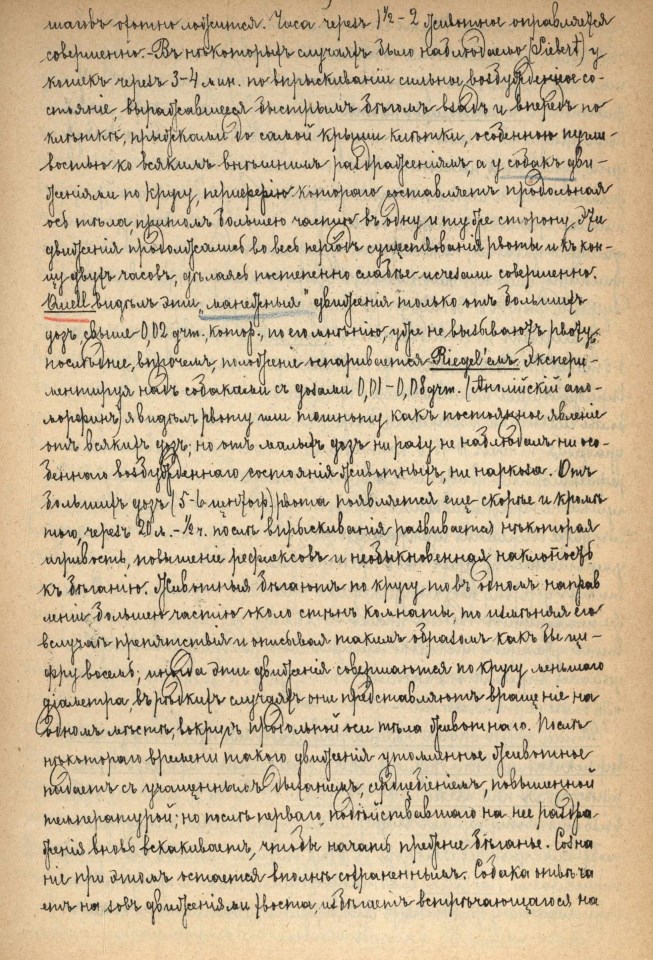 шагов охотно ложится. Часа через 1½–2 животное оправляется
совершенно.–Въ нѣкоторыхъ случаяхъ было наблюдаемо (Siebert) у
кошекъ черезъ 3–4 мин. по впрыскиваніи сильное возбужденное со-
стояніе, выражавшееся быстрымъ бѣгомъ взадъ и впередъ по
клѣткѣ, прыжками до самой крыши клѣтки, особенною пугли-
востью ко всякимъ внѣшнимъ раздраженіямъ, а у собакъ дви-
женіями по кругу, периферію котораго составляетъ продольная
ось тѣла притомъ большею частію въ одну и ту же сторону. Эти
движенія продолжались во весь періодъ существованія рвоты и къ кон-
цу двухъ часовъ, дѣлаясь постепенно слабѣе исчезали совершенно.
Quell видѣлъ эти „манежныя" движенія только отъ большихъ
дозъ, свыше 0,02 дчт., котор., по его мнѣнію, уже не вызываютъ рвоту;
послѣднее, впрочемъ, положеніе оспаривается Riegel'емъ. Экспери-
ментируя надъ собаками съ дозами 0,01–0,08 дчт. (Англійскій апо-
морфинъ) я видѣлъ рвоту или тошноту какъ постоянное явленіе
отъ всякихъ дозъ; но отъ малыхъ дозъ ни разу не наблюдалъ ни осо-
беннаго возбужденнаго состоянія животныхъ, ни наркоза. Отъ
большихъ дозъ (5–6 центигр.) рвота появляется еще скорѣе и кромѣ
того, черезъ 20 м.–½ ч. послѣ впрыскиванія развивается нѣкоторая
игривость, повышеніе рефлексовъ и необыкновенная наклонность
къ бѣганію. Животныя бѣгаютъ по кругу то въ одномъ направ
леніи большею частію около стѣнъ комнаты, то измѣняя его
в случаѣ препятствія и описывая такимъ образомъ какъ бы ци-
фру восемь; иногда эти движенія совершаются по кругу меньшаго
діаметра въ рѣдкихъ случаяхъ они представляютъ вращеніе на
одномъ мѣстѣ, вокругъ продольной оси тѣла животнаго. Послѣ
нѣкотораго времени такого движенія утомленное животное
падаетъ съ учащеннымъ дыханіемъ, сердцебіеніемъ, повышенной
температурой; но послѣ перваго, подѣйствовавшаго на нее раздра
женія вновь вскакиваетъ, чтобы начать прежнее бѣганье. Созна
ніе при этомъ остается вполнѣ сохраненнымъ. Собака отвѣча
етъ на зовъ движеніями хвоста, избѣгаетъ встрѣчающагося на